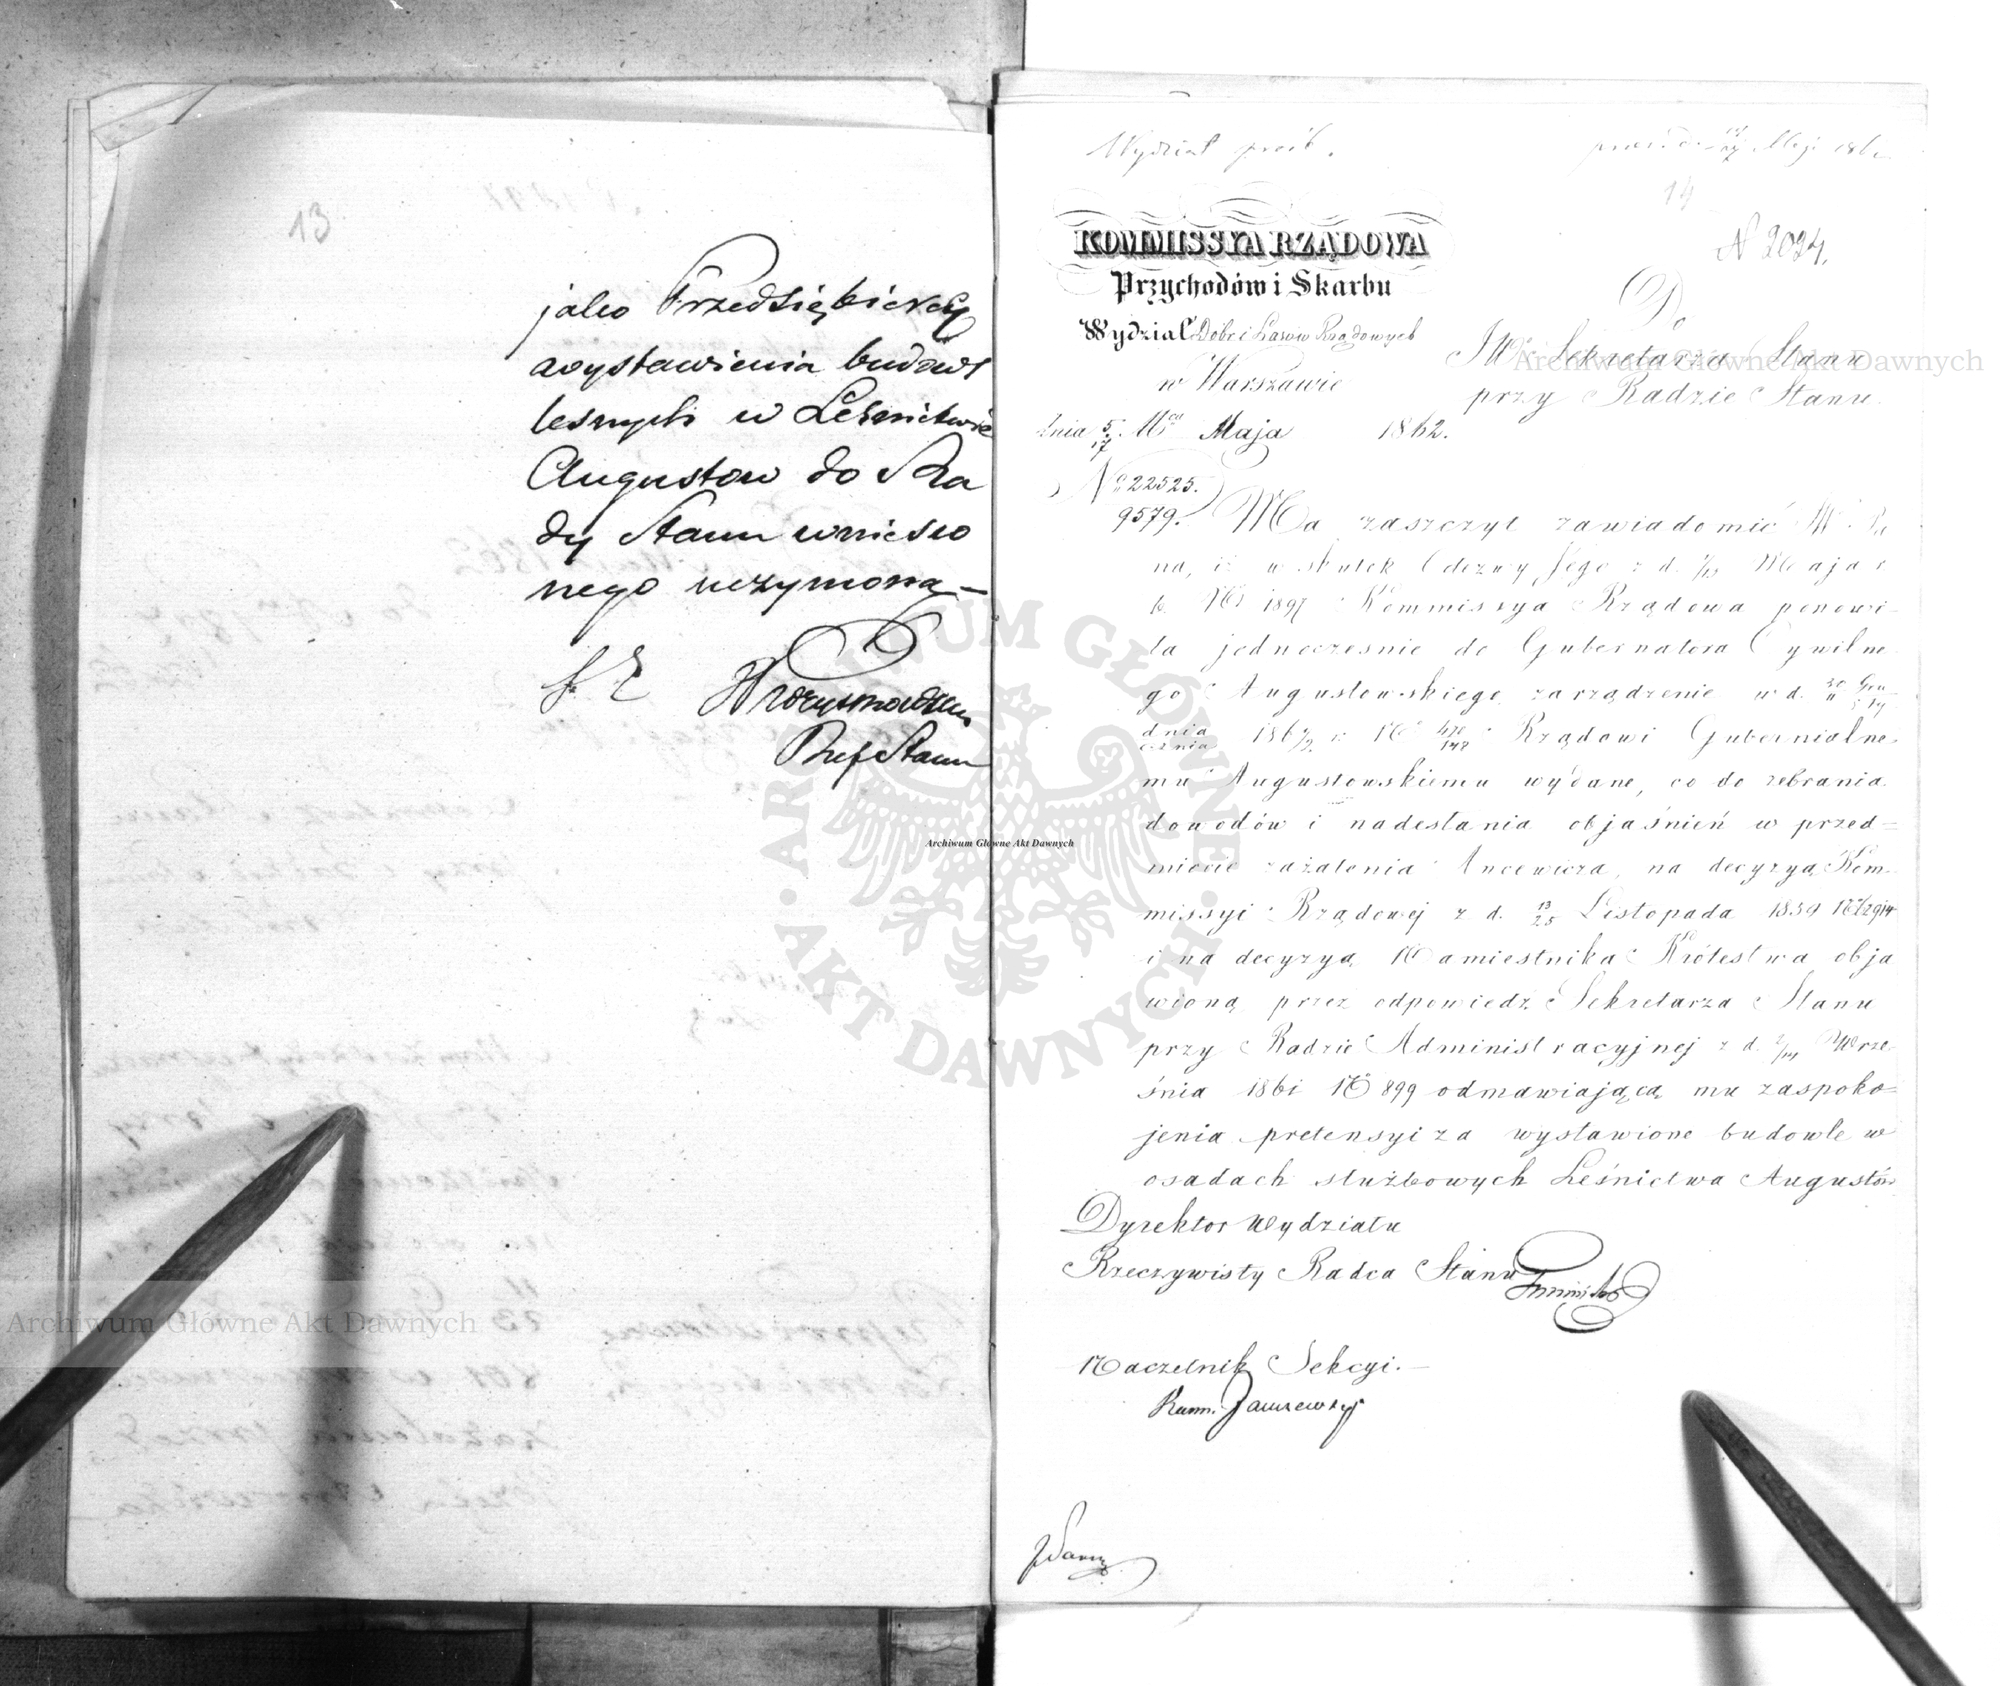 13
jako Przedsiębiercę
wystawienia budowl
leśnych w Leśnictwie
Augustow do Ra
dy Stanu wniesio
nego uczymoną—
Ref Stanu
Wydział próśb.
14
N 2024.
KOMMISSYA RZĄDOWA
Przychodów i Skarbu
Wydział Dóbr i Lasów Rządowych
w Warszawie
dnia 5/17 Mca Maja 1862.
No 22525.
9579.
Do
JW. Sekretarza Stanu
przy Radzie Stanu.
Ma zaszczyt zawiadomić JW. Pa
na, iż w skutek Odezwy Jego z d. 1/13 Maja r
b. No 1897 Kommissya Rządowa ponowi-
ła jednocześnie do Gubernatora Cywilne
go Augustowskiego zarządzenie w d. Gru
dnia 186 No Rządowi Gubernialne-
mu Augustowskiemu wydane, co do zebrania
dowodów i nadesłania objaśnień w przed=
miocie zażalenia Ancewicza, na decyzyą Kom-
missyi Rządowej z d. 13/25 Listopada 1859
i na decyzyą Namiestnika Królestwa obja
wioną przez odpowiedź Sekretarza Stanu
przy Radzie Administracyjnej z d. 2/14 Wrze-
śnia 1861 No 899 odmawiającą mu zaspoko=
jenia pretensyi za wystawione budowle w
osadach służbowych Leśnictwa Augustów
Dyrektor Wydziału
Rzeczywisty Radca Stanu
Naczelnik Sekcyi.—
Archiwum Główne Akt Dawnych
Archiwum Główne Akt Dawnych
Archiwum Główne Akt Dawnych
ARCHIWUM GŁÓWNE
AKT DAWNYCH